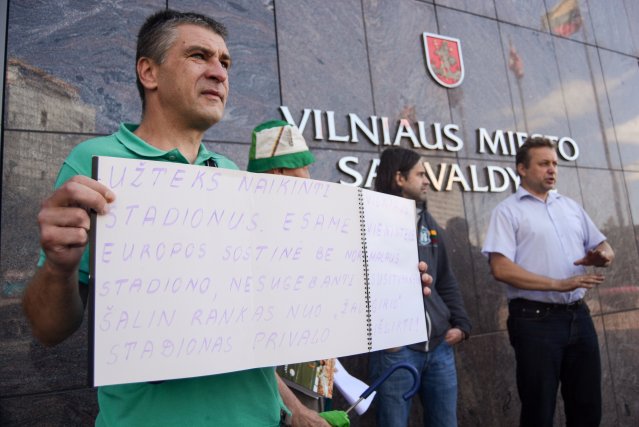 VILNIAUS MIESTO
SA VALDY
UŽTEKS NAIKINTI
STADIONUS. ESAME
EUROPOS SOSTINE BE NORMALAUS
STADIONO, NESUGEBANTI
ŠALIN RANKAS NUO „ŽALGIRIO”
STADIONAS PRIVALO IŠLIKTI!